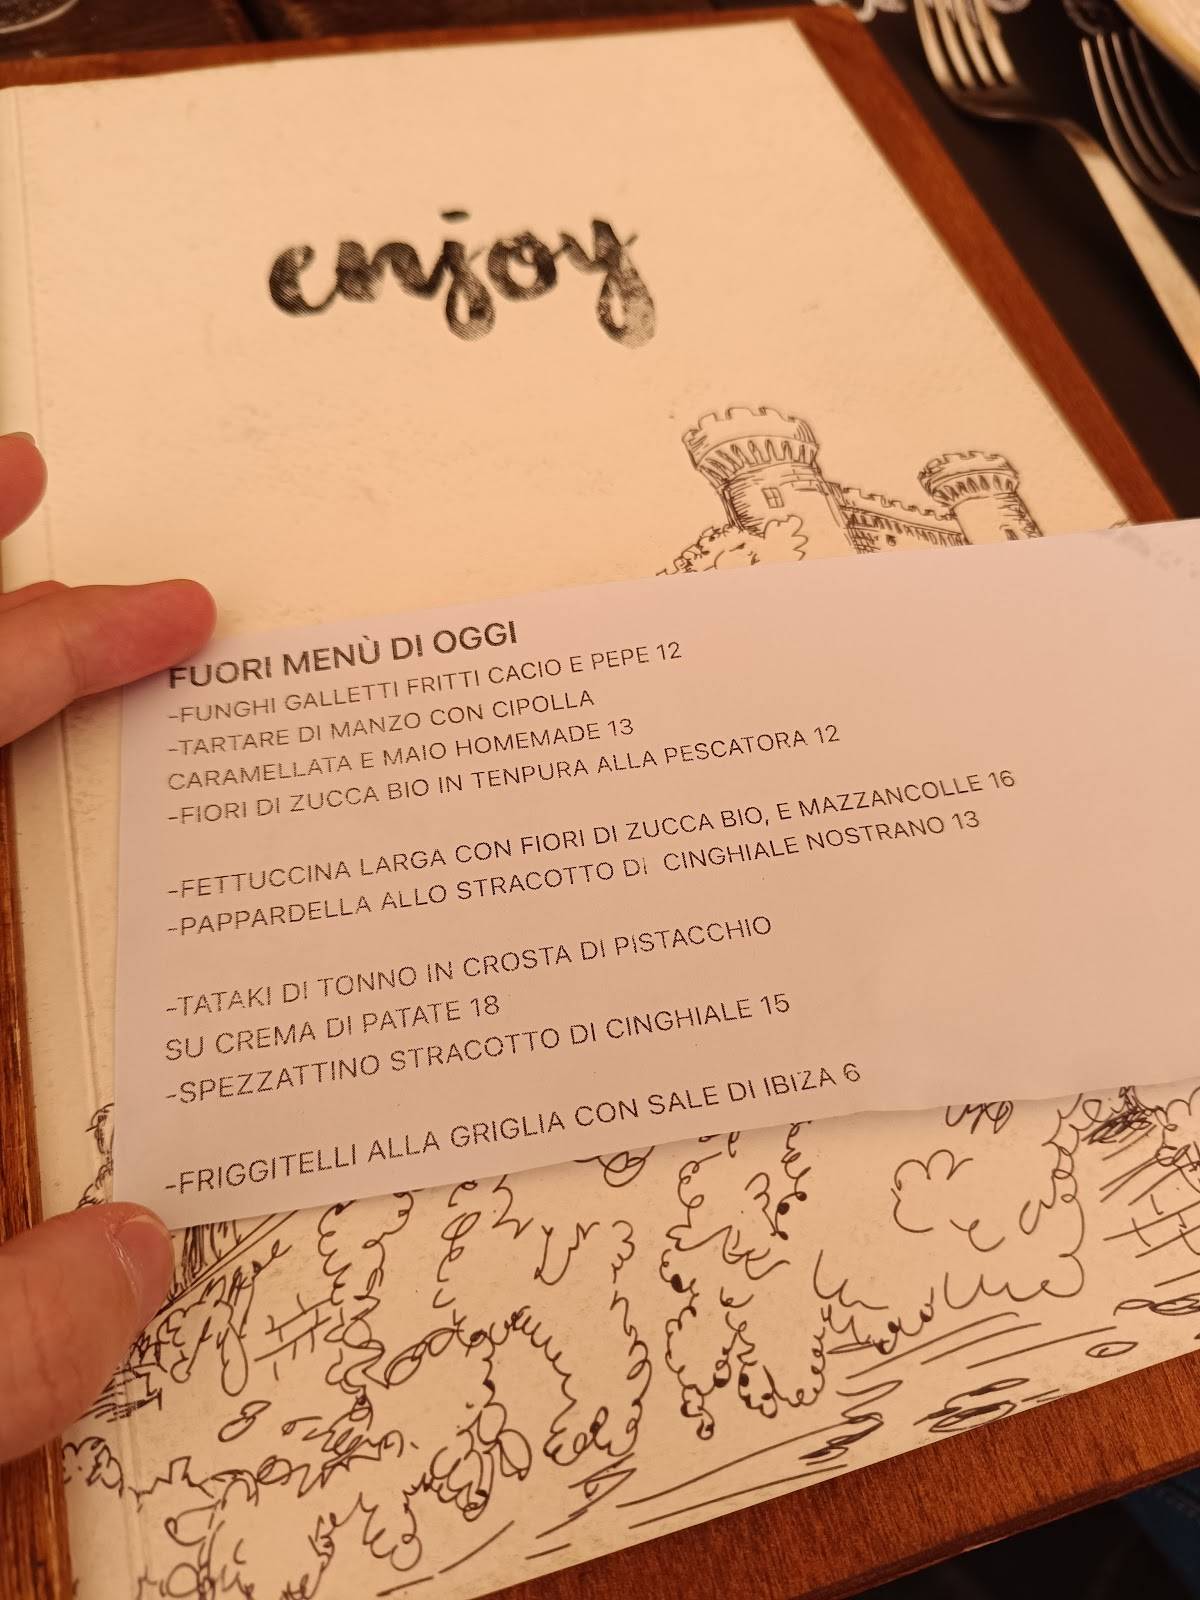 enjoy
FUORI MENÙ DI OGGI
-FUNGHI GALLETTI FRITTI CACIO E PEPE 12
-TARTARE DI MANZO CON CIPOLLA
CARAMELLATA E MAIO HOMEMADE 13
-FIORI DI ZUCCA BIO IN TENPURA ALLA PESCATORA 12
-FETTUCCINA LARGA CON FIORI DI ZUCCA BIO, E MAZZANCOLLE 16
-PAPPARDELLA ALLO STRACOTTO DI CINGHIALE NOSTRANO 13
-TATAKI DI TONNO IN CROSTA DI PISTACCHIO
SU CREMA DI PATATE 18
-SPEZZATTINO STRACOTTO DI CINGHIALE 15
-FRIGGITELLI ALLA GRIGLIA CON SALE DI IBIZA 6